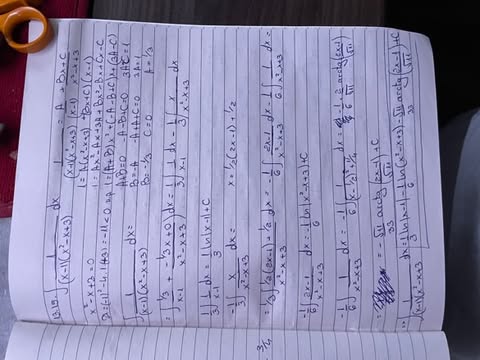 13.19. ∫ 1/((x-1)(x²-x+3)) dx    1/((x-1)(x²-x+3)) = A/(x-1) + (Bx+C)/(x²-x+3)
1 = A(x²-x+3) + (Bx+C)(x-1)
x²-x+3=0    1 = Ax²-Ax+3A+Bx²-Bx+Cx-C
D=(-1)²-4·1·(+3)=-11<0 ⇒ 1=(A+B)x²+(-A-B+C)x+(3A-C)
A+B=0  -A-B+C=0  3A-C=1
∫ 1/((x-1)(x²-x+3)) dx=    B=-A  -A+A+C=0  3A=1
B=-1/3  C=0  A=1/3
= ∫ (1/3)/(x-1) + (-1/3x+0)/(x²-x+3) dx = 1/3 ∫ 1/(x-1) dx - 1/3 ∫ x/(x²-x+3) dx
1/3 ∫ 1/(x-1) dx = 1/3 ln|x-1|+C
-1/3 ∫ x/(x²-x+3) dx =    x=1/2(2x-1)+1/2
3/4
= -1/3 ∫ (1/2(2x-1)+1/2)/(x²-x+3) dx = -1/6 ∫ (2x-1)/(x²-x+3) dx - 1/6 ∫ 1/(x²-x+3) dx =
-1/6 ∫ (2x-1)/(x²-x+3) dx = -1/6 ln|x²-x+3|+C
-1/6 ∫ 1/(x²-x+3) dx = -1/6 ∫ 1/((x-1/2)²+11/4) dx = -1/6 · 2/√11 arctg(2x-1/√11)
= -√11/33 arctg(2x-1/√11)+C
⇒ ∫ 1/((x-1)(x²-x+3)) dx = 1/3 ln|x-1| - 1/6 ln(x²-x+3) - √11/33 arctg(2x-1/√11)+C